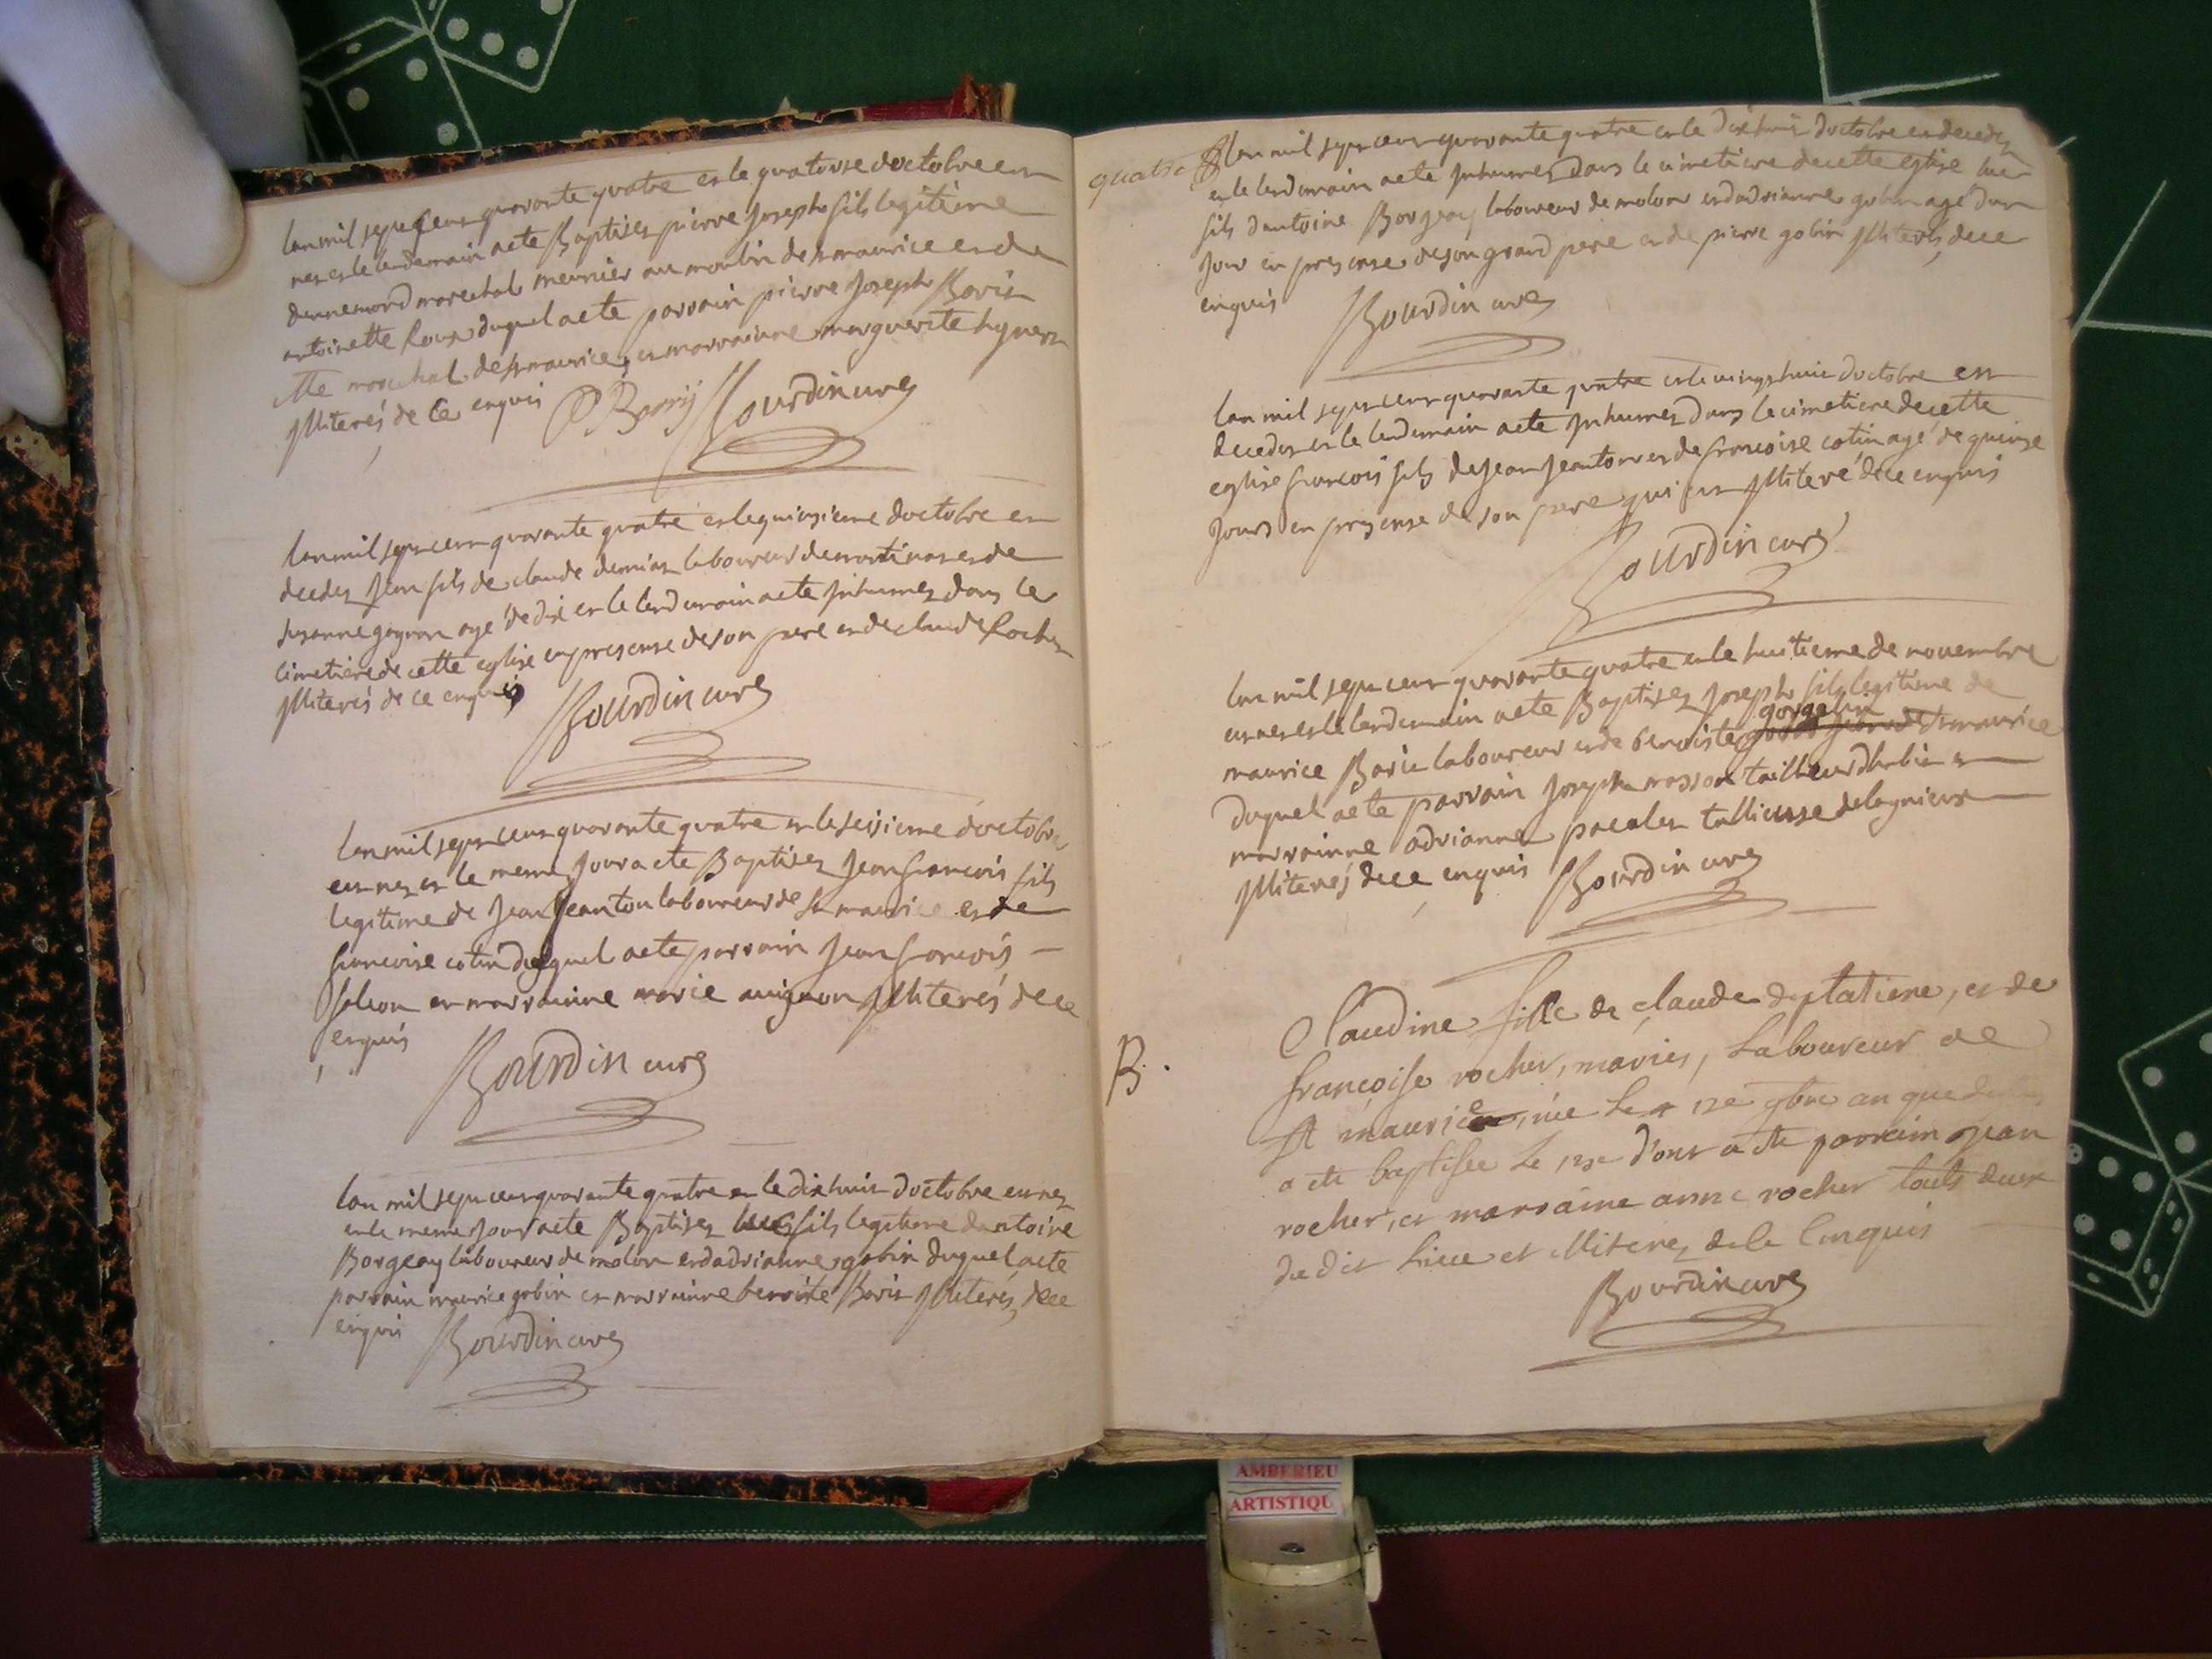 lan mil sept cent quarante quatre et le quatorse doctobre est
nez et le lendemain a ete Baptisez pierre Joseph fils legitime
marechal meunier au moulin de st maurice et de
antoinette Roux duquel a ete parrain pierre Joseph Boris
marechal de st maurice, et marrainne marguerite
Illiterés de ce enquis P Borrij Bourdin curé
lan mil sept cent quarante quatre et le quinsieme doctobre est
decedez Jean fils de claude laboureur de et de
susanne gagnon agé de dix et le lendemain a ete Inhumez dans le
cimetiere de cette eglise en presense de son pere et de claude Rocher
Illiterés de ce enquis Bourdin curé
lan mil sept cent quarante quatre et le seisieme doctobre
est nez et le meme Jour a ete Baptisez Jean francois fils
legitime de Jean Jeanton laboureur de st maurice et de
francoise cotin duquel a ete parrain Jean francois
et marrainne marie Illiterés de ce
enquis Bourdin curé
lan mil sept cent quarante quatre et le dix huit doctobre est nez
et le meme Jour a ete Baptisez luc fils legitime dantoine
Borgeay laboureur de molon et dadrianne gobin duquel a ete
parrain maurice gobin et marrainne benoite Boris Illiterés de ce
enquis Bourdin curé
quatre lan mil sept cent quarante quatre et le dix huit doctobre est decedez
et le lendemain a ete Inhumez dans le cimetiere de cette eglise luc
fils dantoine Borgeay laboureur de molon et dadrianne gobin agé dun
Jour en presense de son grand pere et de pierre gobin Illiterés de ce
enquis Bourdin curé
lan mil sept cent quarante quatre et le vingt huit doctobre est
decedez et le lendemain a ete Inhumez dans le cimetiere de cette
eglise francois fils de Jean Jeanton et de francoise cotin agé de quinse
Jours en presense de son pere qui est Illiteré de ce enquis
Bourdin curé
lan mil sept cent quarante quatre et le huitieme de novembre
est nez et le lendemain a ete Baptisez Joseph fils legitime de
gorgelin
maurice Boris laboureur et de benoiste de st maurice
duquel a ete parrain Joseph masson tailleur dhabit et
marrainne adrianne tallieusse de lagnieux
Illiterés de ce enquis Bourdin curé
B. Claudine fille de claude et de
françoise rocher, mariés, Laboureur de
st maurice, née Le 12e 9bre an que dessus
a eté baptisée le 13e dont a eté parrain Jean
rocher, et marraine anne rocher touts deux
du dit Lieu et illiterez de ce Enquis
Bourdin curé
AMBERIEU
ARTISTIQU